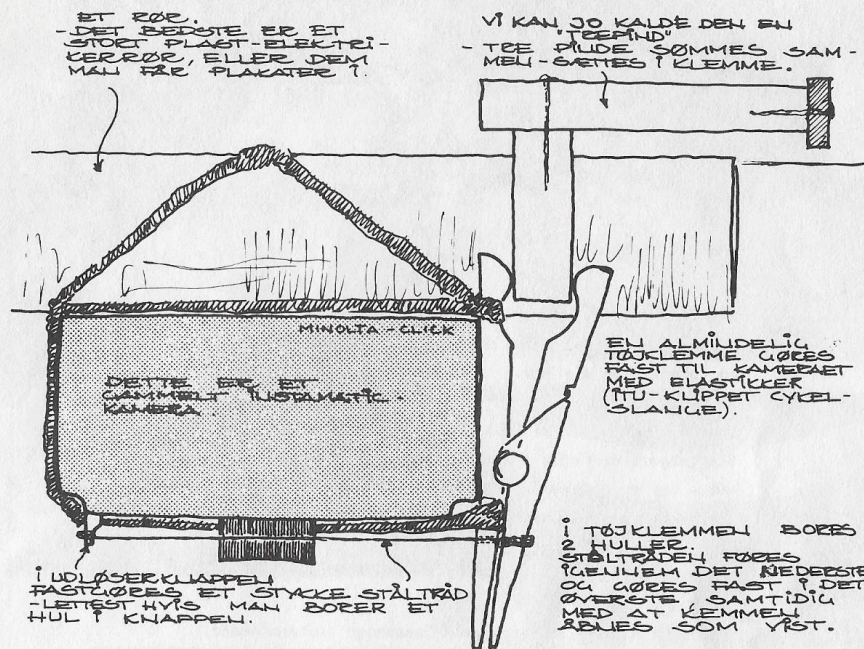 ET RØR.
-DET BEDSTE ER ET
STORT PLAST-ELEKTRI-
KERRØR, ELLER DEM
MAN FÅR PLAKATER I.
VI KAN JO KALDE DEN EN
"TREPIND"
- TRE PINDE SØMMES SAM-
MEN-SÆTTES I KLEMME.
MINOLTA-CLICK
DETTE ER ET
GAMMELT INSTAMATIC-
KAMERA
EN ALMINDELIG
TØJKLEMME GØRES
FAST TIL KAMERAET
MED ELASTIKKER
(ITU-KLIPPET CYKEL-
SLANGE).
I UDLØSERKNAPPEN
FASTGØRES ET STYKKE STÅLTRÅD
-LETTEST HVIS MAN BORER ET
HUL I KNAPPEN.
I TØJKLEMMEN BORES
2 HULLER.
STÅLTRÅDEN FØRES
IGENNEM DET NEDERSTE
OG GØRES FAST I DET
ØVERSTE SAMTIDIG
MED AT KEMMEN
ÅBNES SOM VIST.